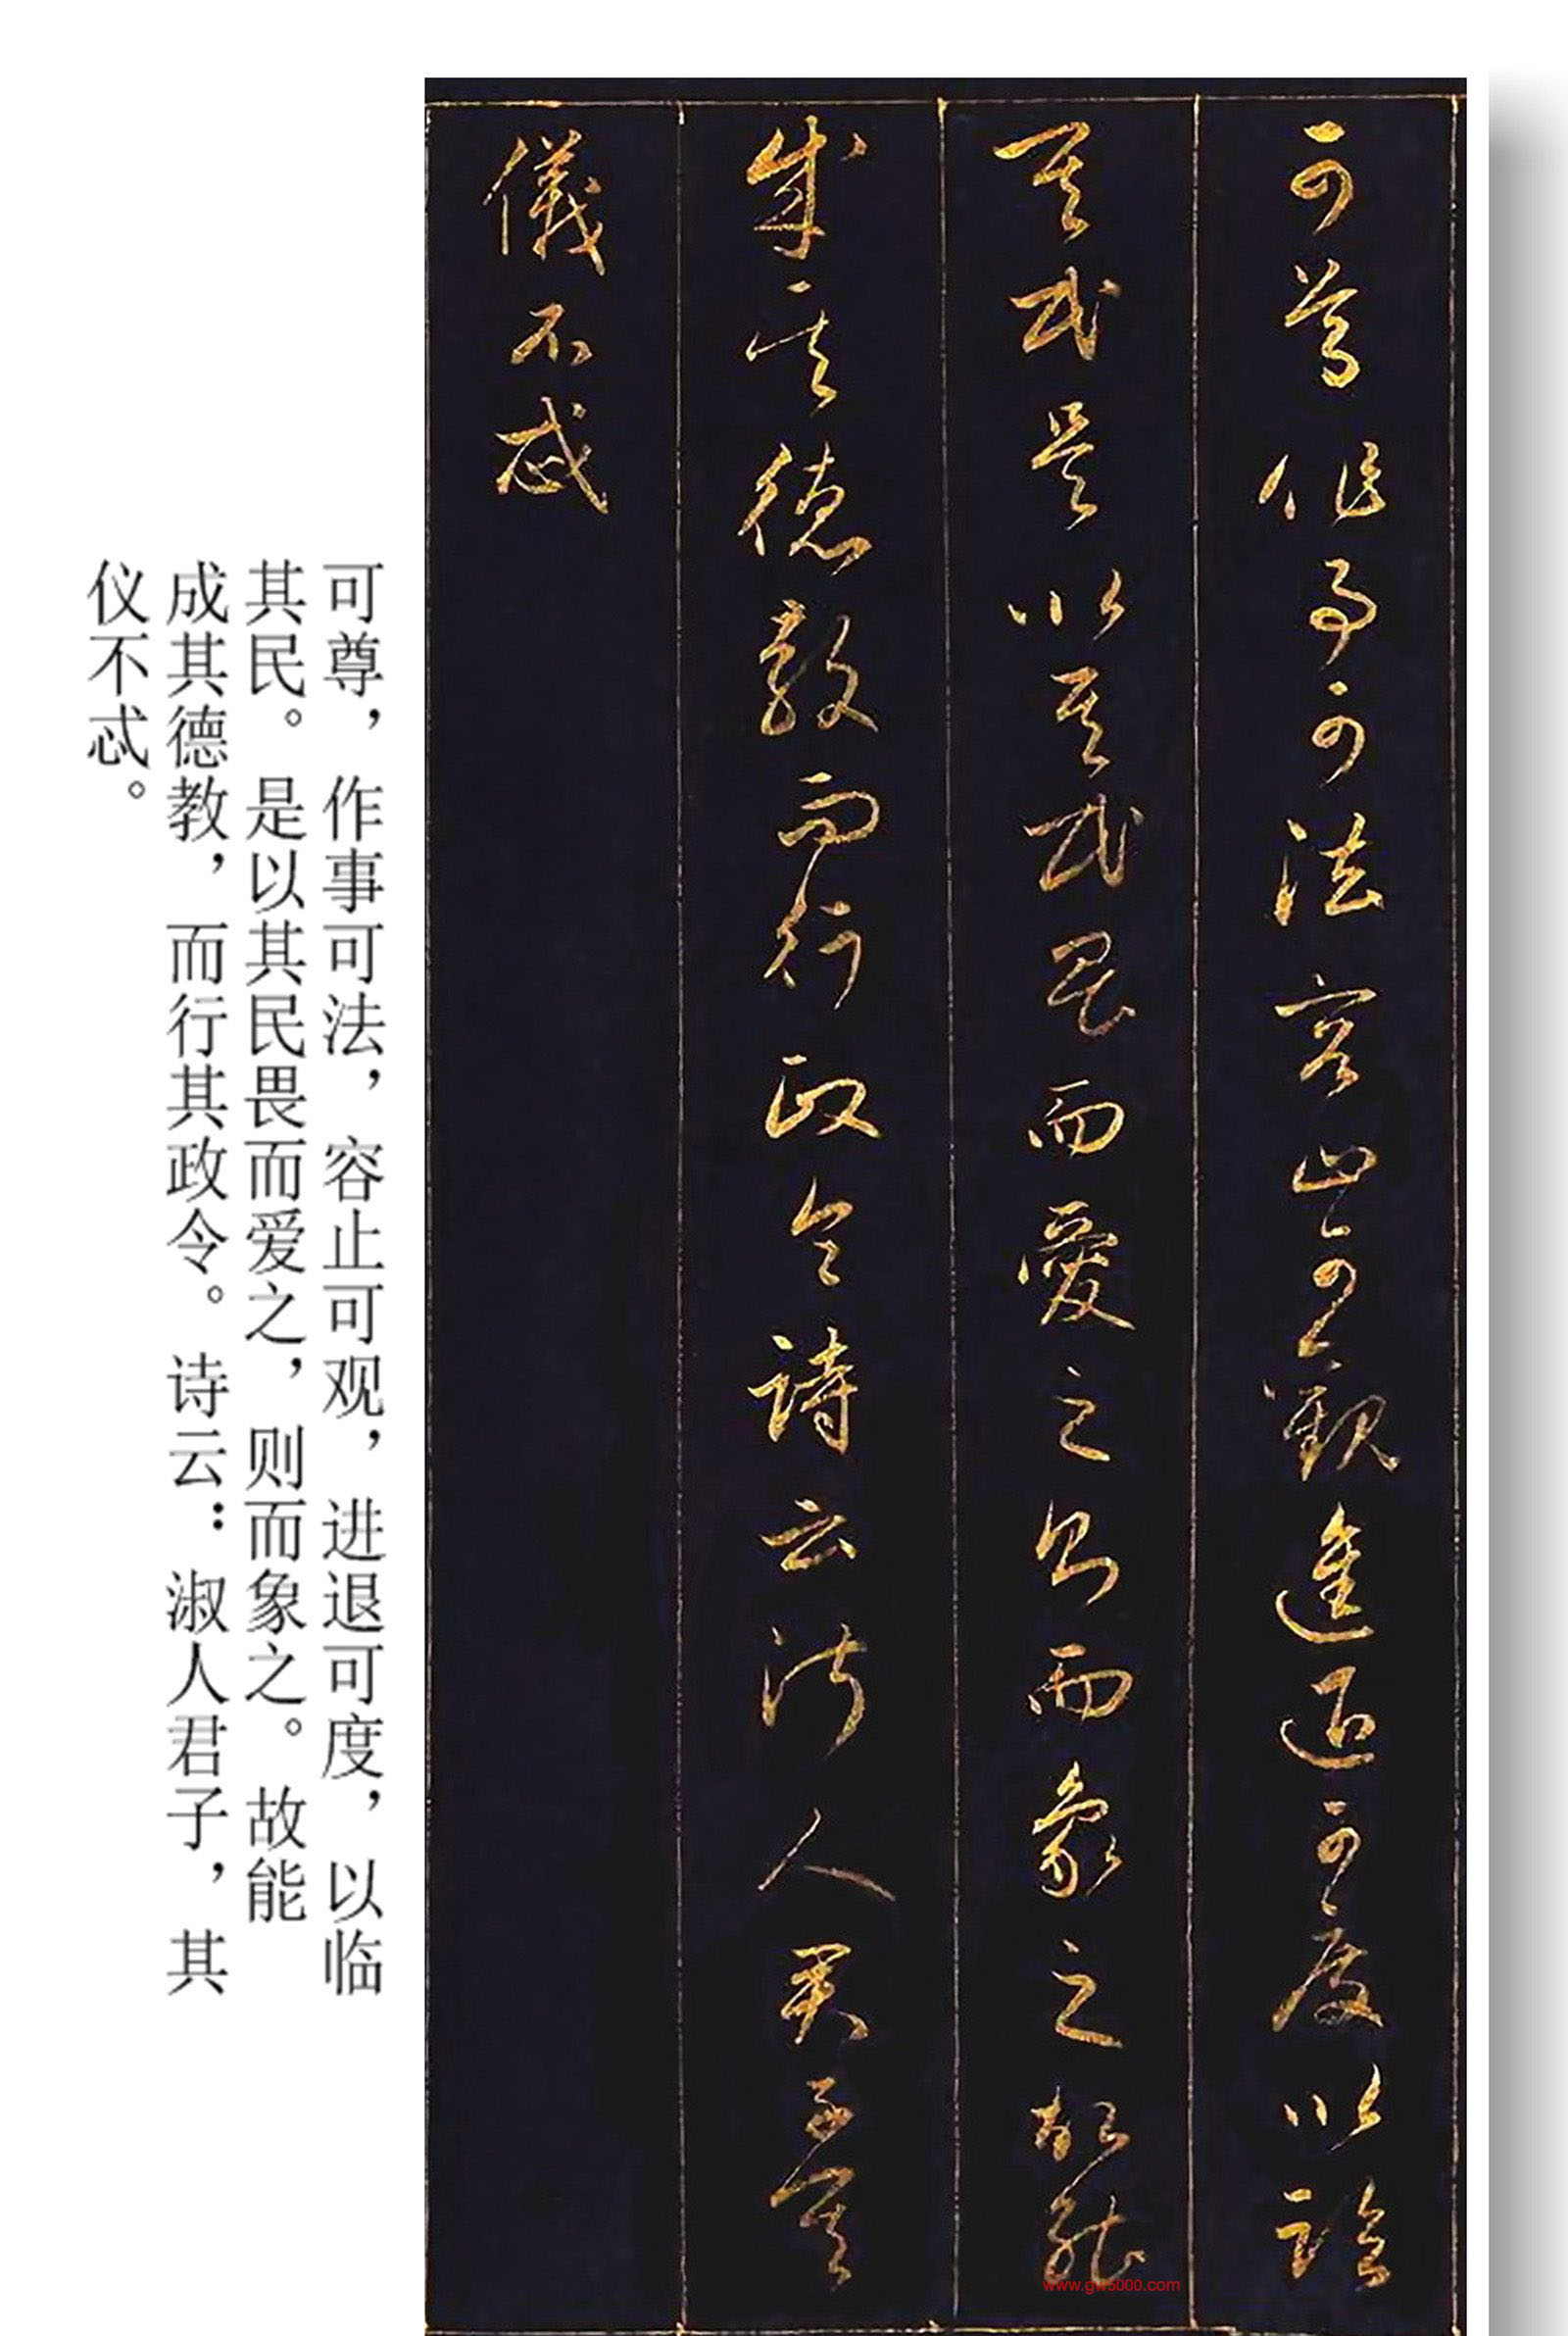 可尊作事可法容止可觀進退可度以臨
其民是以其民畏而愛之則而象之故能
成其德教而行政令詩云淑人君子其
儀不忒
可尊，作事可法，容止可观，进退可度，以临
其民。是以其民畏而爱之，则而象之。故能
成其德教，而行其政令。诗云：淑人君子，其
仪不忒。
www.gw5000.com